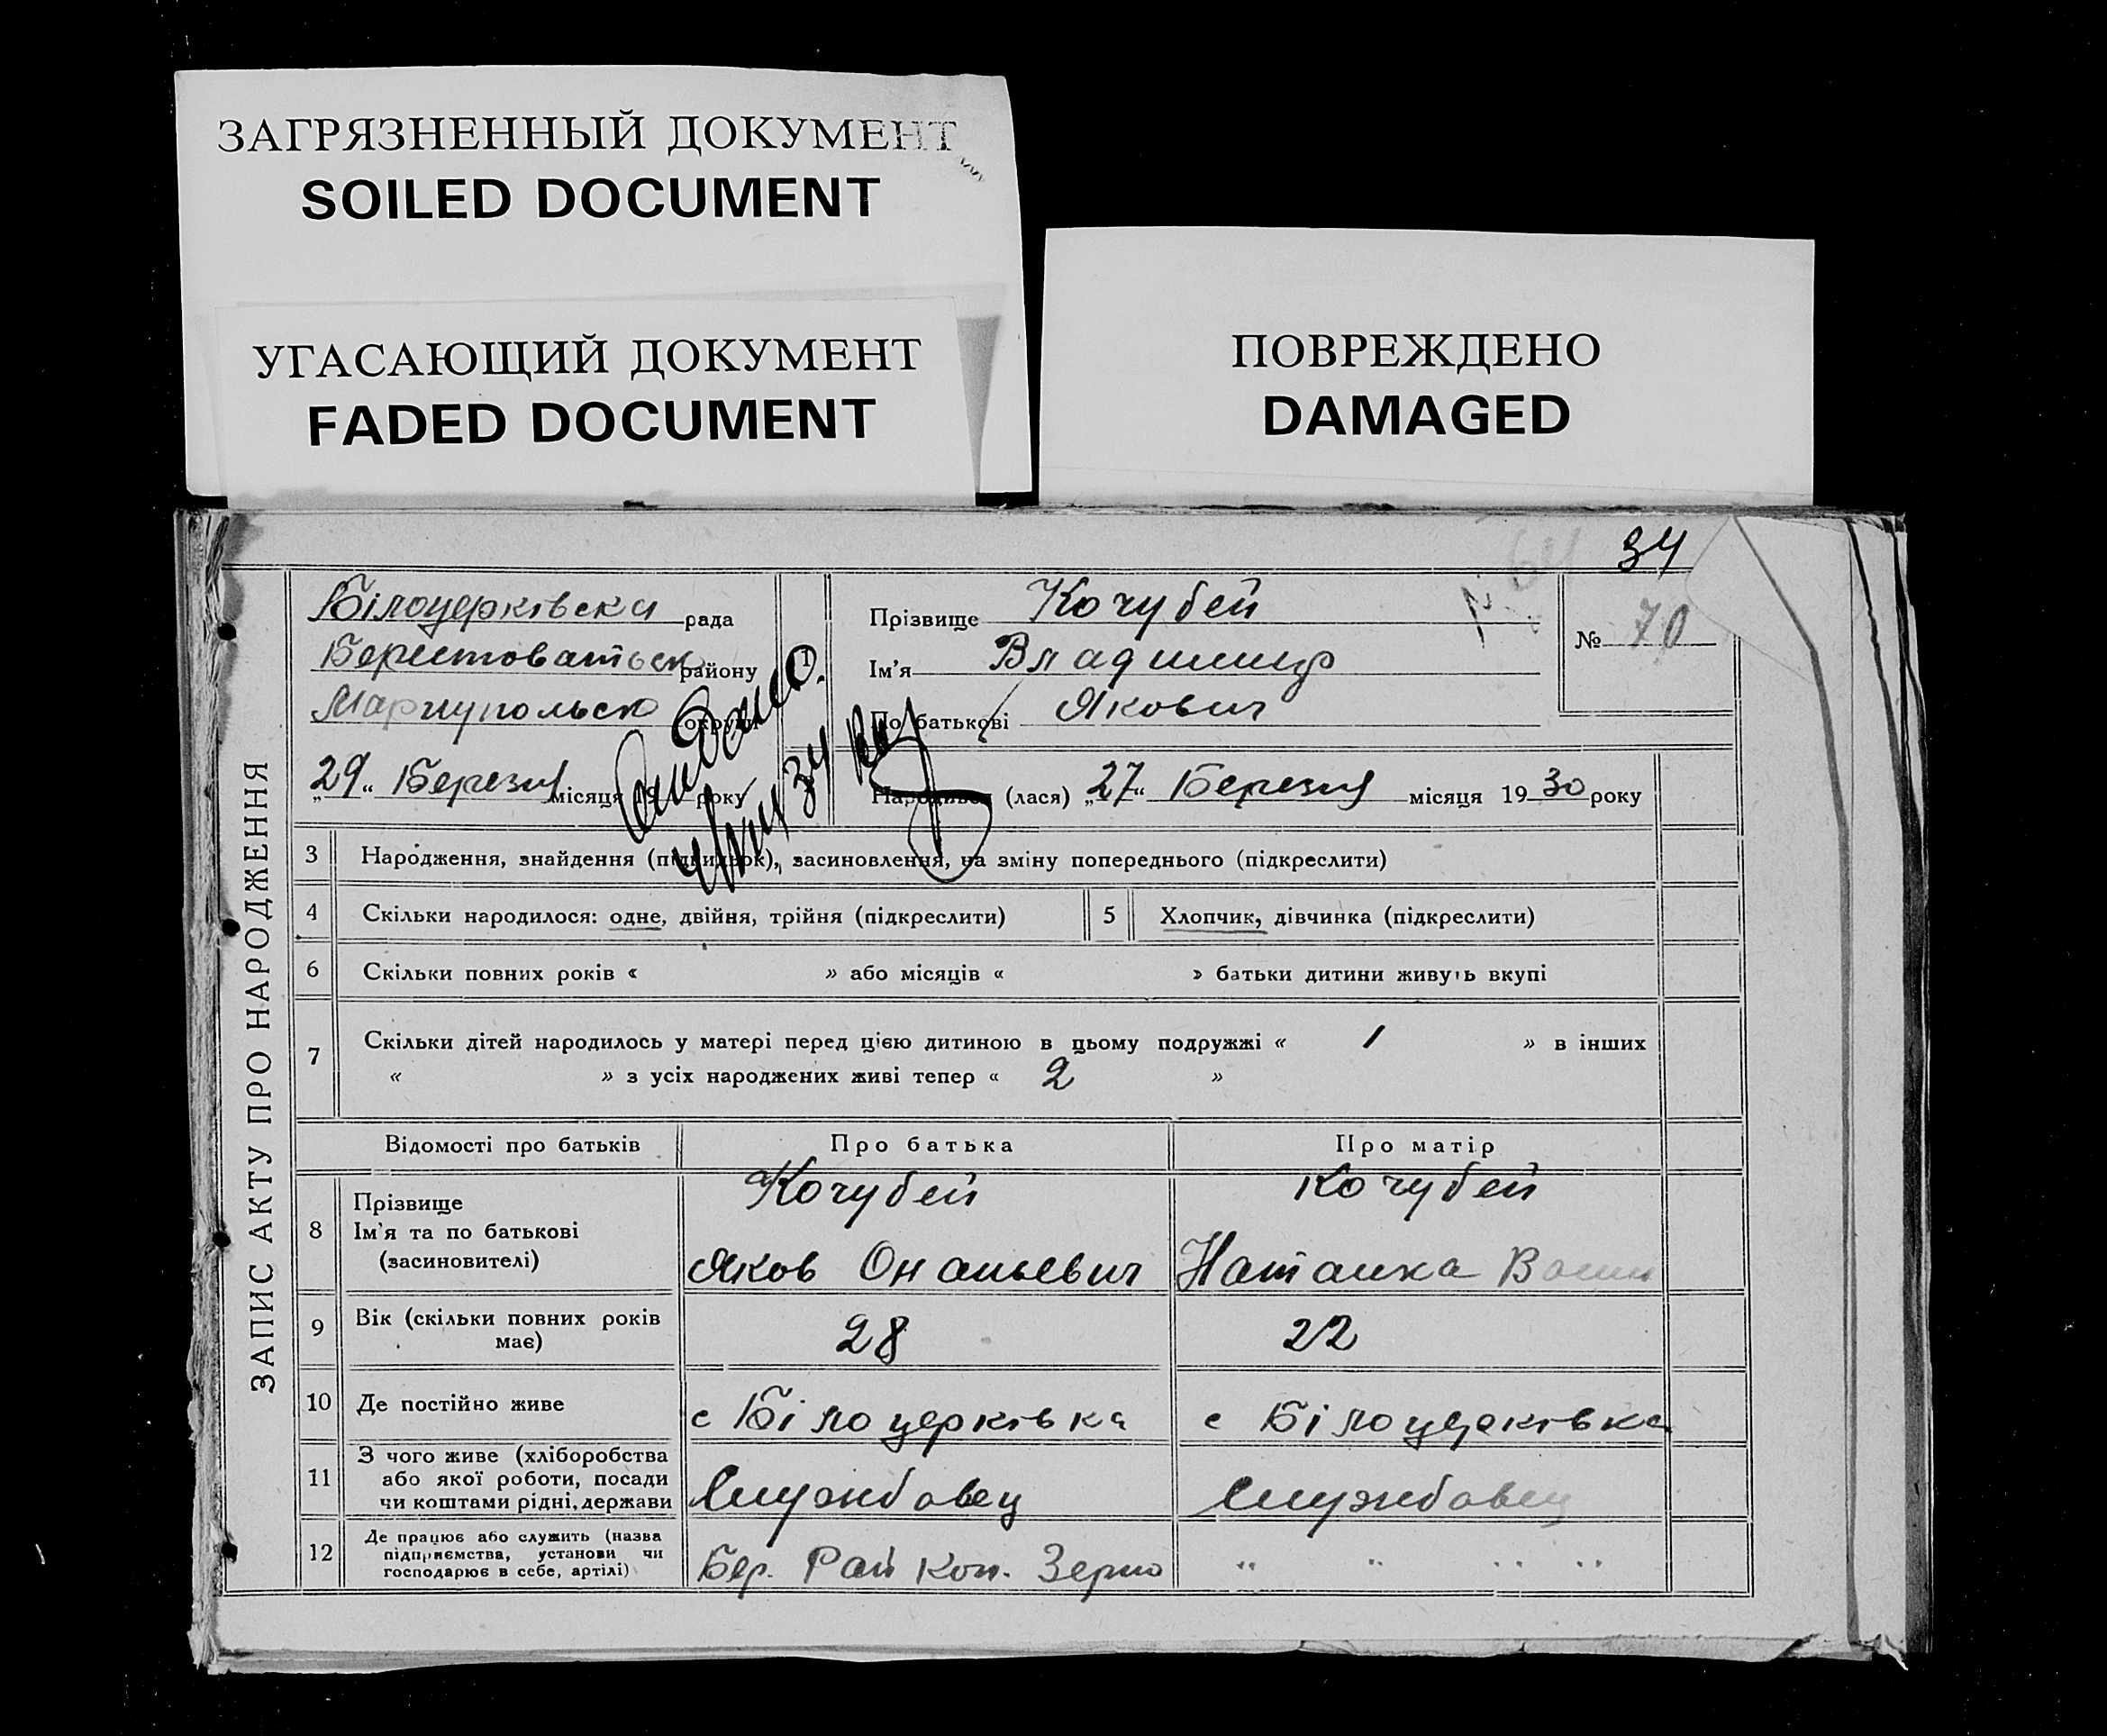 ЗАГРЯЗНЕННЫЙ ДОКУМЕНТ
SOILED DOCUMENT
УГАСАЮЩИЙ ДОКУМЕНТ
FADED DOCUMENT
ПОВРЕЖДЕНО
DAMAGED
34
ЗАПИС АКТУ ПРО НАРОДЖЕННЯ
Білоцерківска рада
району
округи
1
Прізвище Кочубей
Ім'я Владимир
По батькові Якович
№ 70
„29" Березня місяця 19 року
Народився (лася) „27" Березня місяця 1930 року
3 Народження, знайдення (підкидьок), засиновлення, на зміну попереднього (підкреслити)
4 Скільки народилося: одне, двійня, трійня (підкреслити)
5 Хлопчик, дівчинка (підкреслити)
6 Скільки повних років « » або місяців « » батьки дитини живуть вкупі
7 Скільки дітей народилось у матері перед цією дитиною в цьому подружжі « 1 » в інших
« » з усіх народжених живі тепер « 2 »
Відомості про батьків
Про батька
Про матір
8 Прізвище
Ім'я та по батькові
(засиновителі)
Кочубей
Яков Онаньевич
Кочубей
Наталка
9 Вік (скільки повних років
має)
28
22
10 Де постійно живе
с Білоцерківка
с Білоцерківка
11 З чого живе (хліборобства
або якої роботи, посади
чи коштами рідні, держави
Службовец
Службовец
12 Де працює або служить (назва
підприємства, установи чи
господарює в себе, артілі)
Бер. Рай Коп. Зерно
" " " "